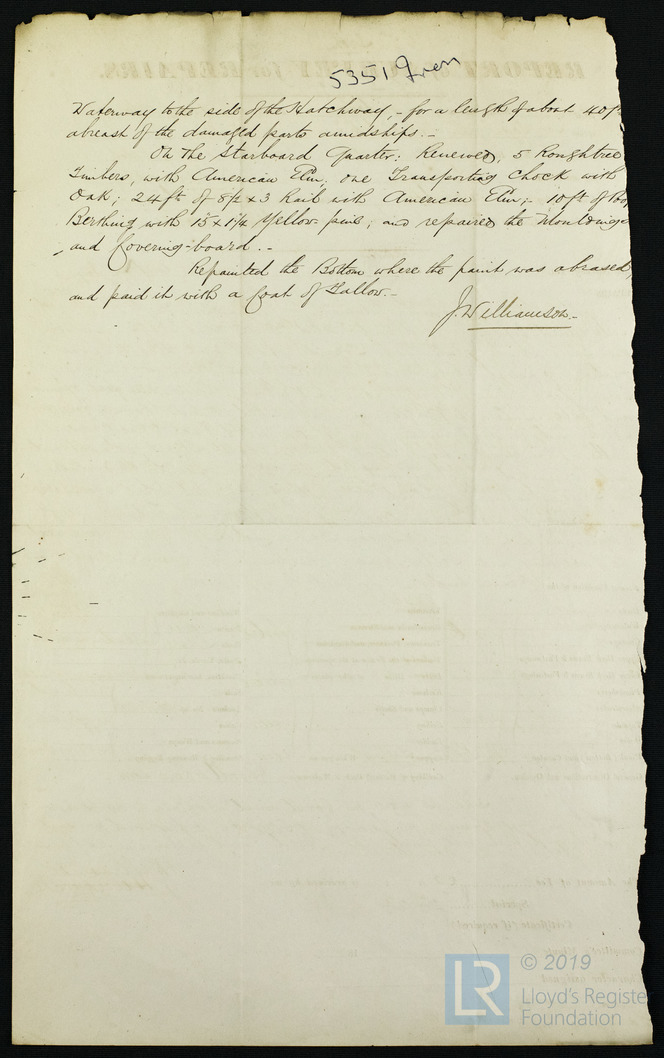 5351 Iron
Waterway to the side of the Hatchway, - for a length of about 40 ft
abreast of the damaged parts amidships. -
On the Starboard Quarter: Renewed, 5 Roughtree
Timbers, with American Elm, one Transporting Chock with
Oak; 24 ft of 8½ x 3 Rail with American Elm; - 10 ft of
Berthing with 15 x 1¼ Yellow pine; and repaired the Mouldings
and Covering-board. -
Repainted the Bottom where the paint was abrased,
and paid it with a Coat of Tallow. -
J. Williamson -
LR
© 2019
Lloyd's Register
Foundation